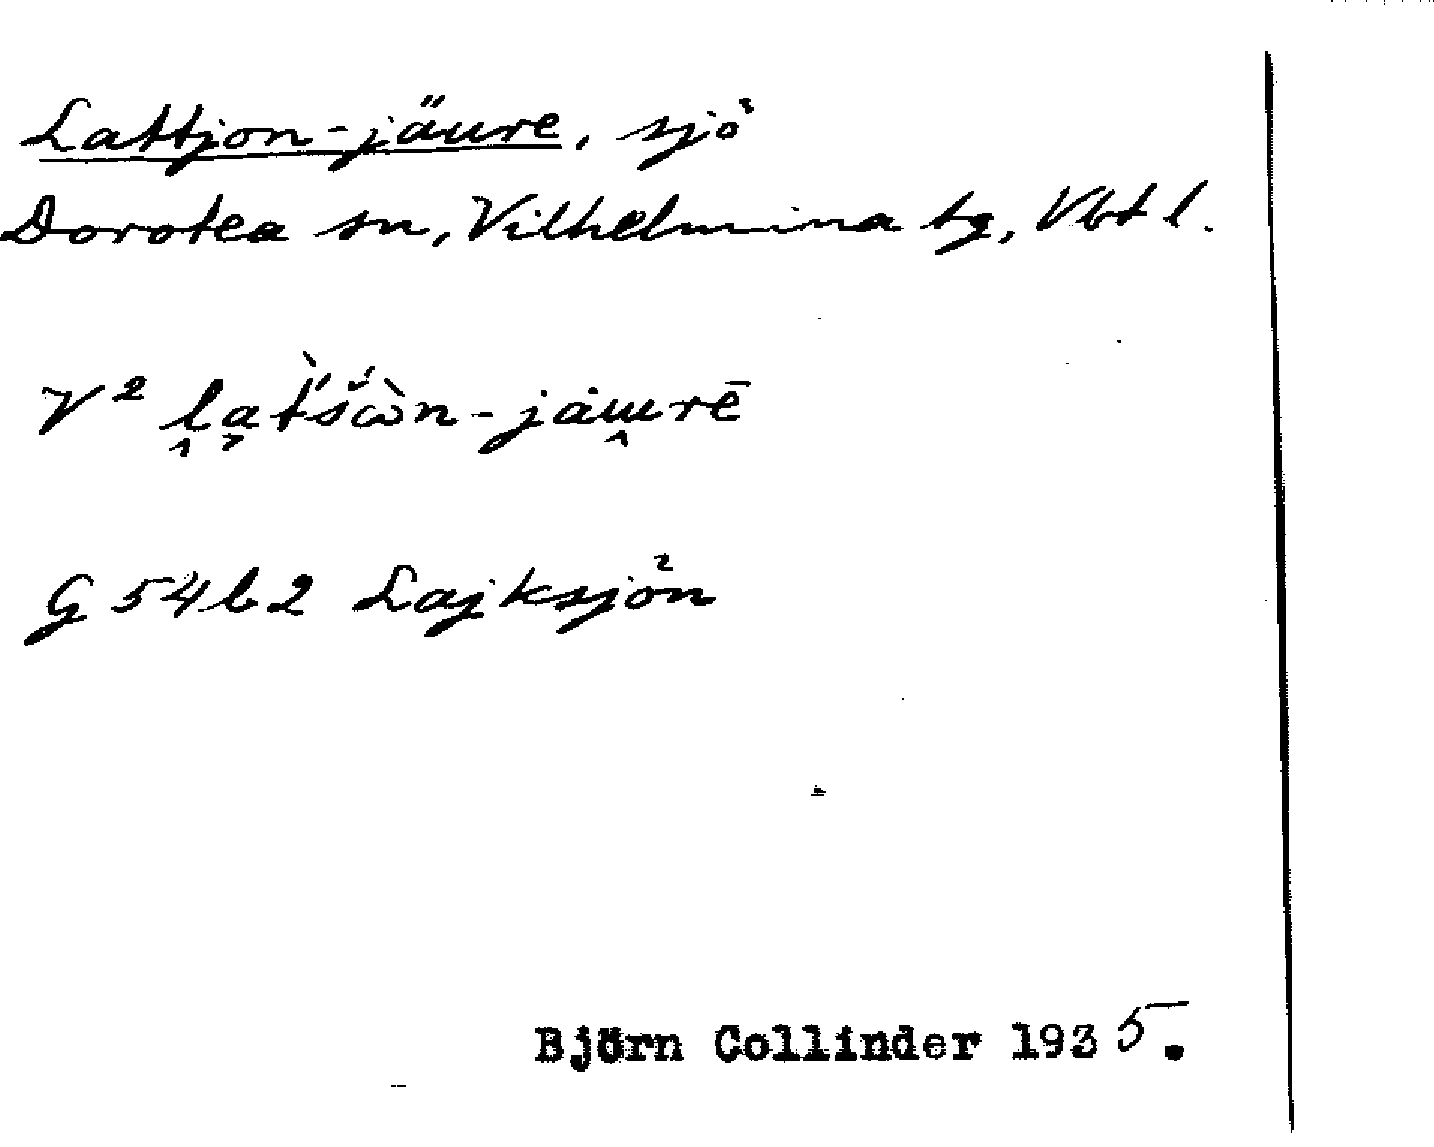 Lattjon-jäure, sjö
Dorotea sn, Vilhelmina tg, Vbtl.
V²
G 54b2 Lajksjön
Björn Collinder 1935.